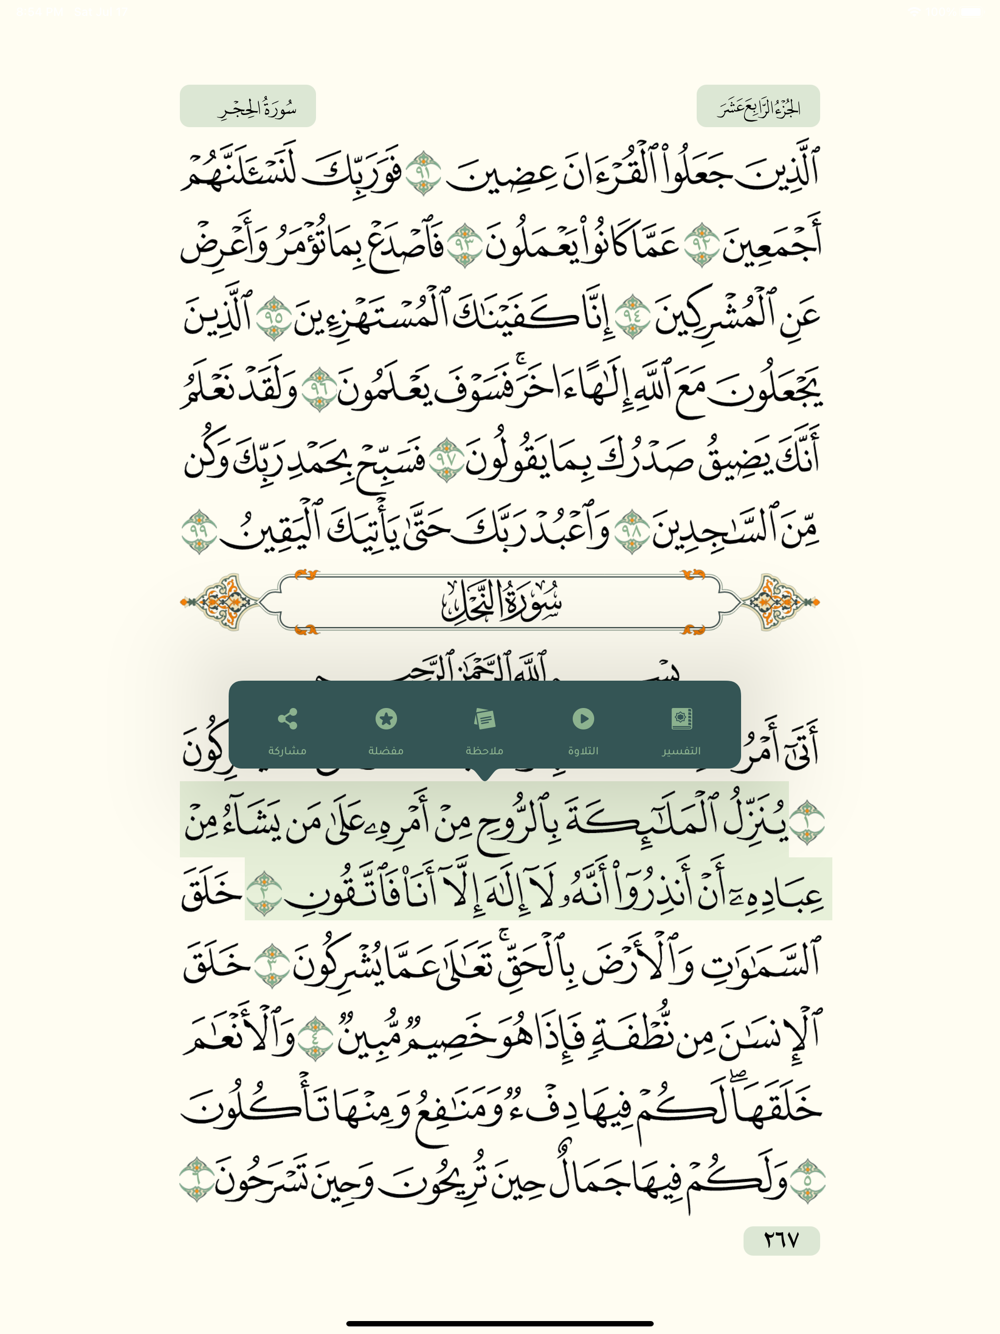 الجُزْءُ الرَّابِعَ عَشَرَ
سُورَةُ الحِجْرِ
ٱلَّذِينَ جَعَلُوا۟ ٱلْقُرْءَانَ عِضِينَ ٩١ فَوَرَبِّكَ لَنَسْـَٔلَنَّهُمْ
أَجْمَعِينَ ٩٢ عَمَّا كَانُوا۟ يَعْمَلُونَ ٩٣ فَٱصْدَعْ بِمَا تُؤْمَرُ وَأَعْرِضْ
عَنِ ٱلْمُشْرِكِينَ ٩٤ إِنَّا كَفَيْنَـٰكَ ٱلْمُسْتَهْزِءِينَ ٩٥ ٱلَّذِينَ
يَجْعَلُونَ مَعَ ٱللَّهِ إِلَـٰهًا ءَاخَرَ ۚ فَسَوْفَ يَعْلَمُونَ ٩٦ وَلَقَدْ نَعْلَمُ
أَنَّكَ يَضِيقُ صَدْرُكَ بِمَا يَقُولُونَ ٩٧ فَسَبِّحْ بِحَمْدِ رَبِّكَ وَكُن
مِّنَ ٱلسَّـٰجِدِينَ ٩٨ وَٱعْبُدْ رَبَّكَ حَتَّىٰ يَأْتِيَكَ ٱلْيَقِينُ ٩٩
سُورَةُ النَّحْلِ
بِسْمِ ٱللَّهِ ٱلرَّحْمَـٰنِ ٱلرَّحِيمِ
التفسير
التلاوة
ملاحظة
مفضلة
مشاركة
أَتَىٰٓ أَمْرُ
يُنَزِّلُ ٱلْمَلَـٰٓئِكَةَ بِٱلرُّوحِ مِنْ أَمْرِهِۦ عَلَىٰ مَن يَشَآءُ مِنْ
عِبَادِهِۦٓ أَنْ أَنذِرُوٓا۟ أَنَّهُۥ لَآ إِلَـٰهَ إِلَّآ أَنَا۠ فَٱتَّقُونِ ٢ خَلَقَ
ٱلسَّمَـٰوَٰتِ وَٱلْأَرْضَ بِٱلْحَقِّ ۚ تَعَـٰلَىٰ عَمَّا يُشْرِكُونَ ٣ خَلَقَ
ٱلْإِنسَـٰنَ مِن نُّطْفَةٍ فَإِذَا هُوَ خَصِيمٌ مُّبِينٌ ٤ وَٱلْأَنْعَـٰمَ
خَلَقَهَا ۗ لَكُمْ فِيهَا دِفْءٌ وَمَنَـٰفِعُ وَمِنْهَا تَأْكُلُونَ
٥ وَلَكُمْ فِيهَا جَمَالٌ حِينَ تُرِيحُونَ وَحِينَ تَسْرَحُونَ ٦
٢٦٧